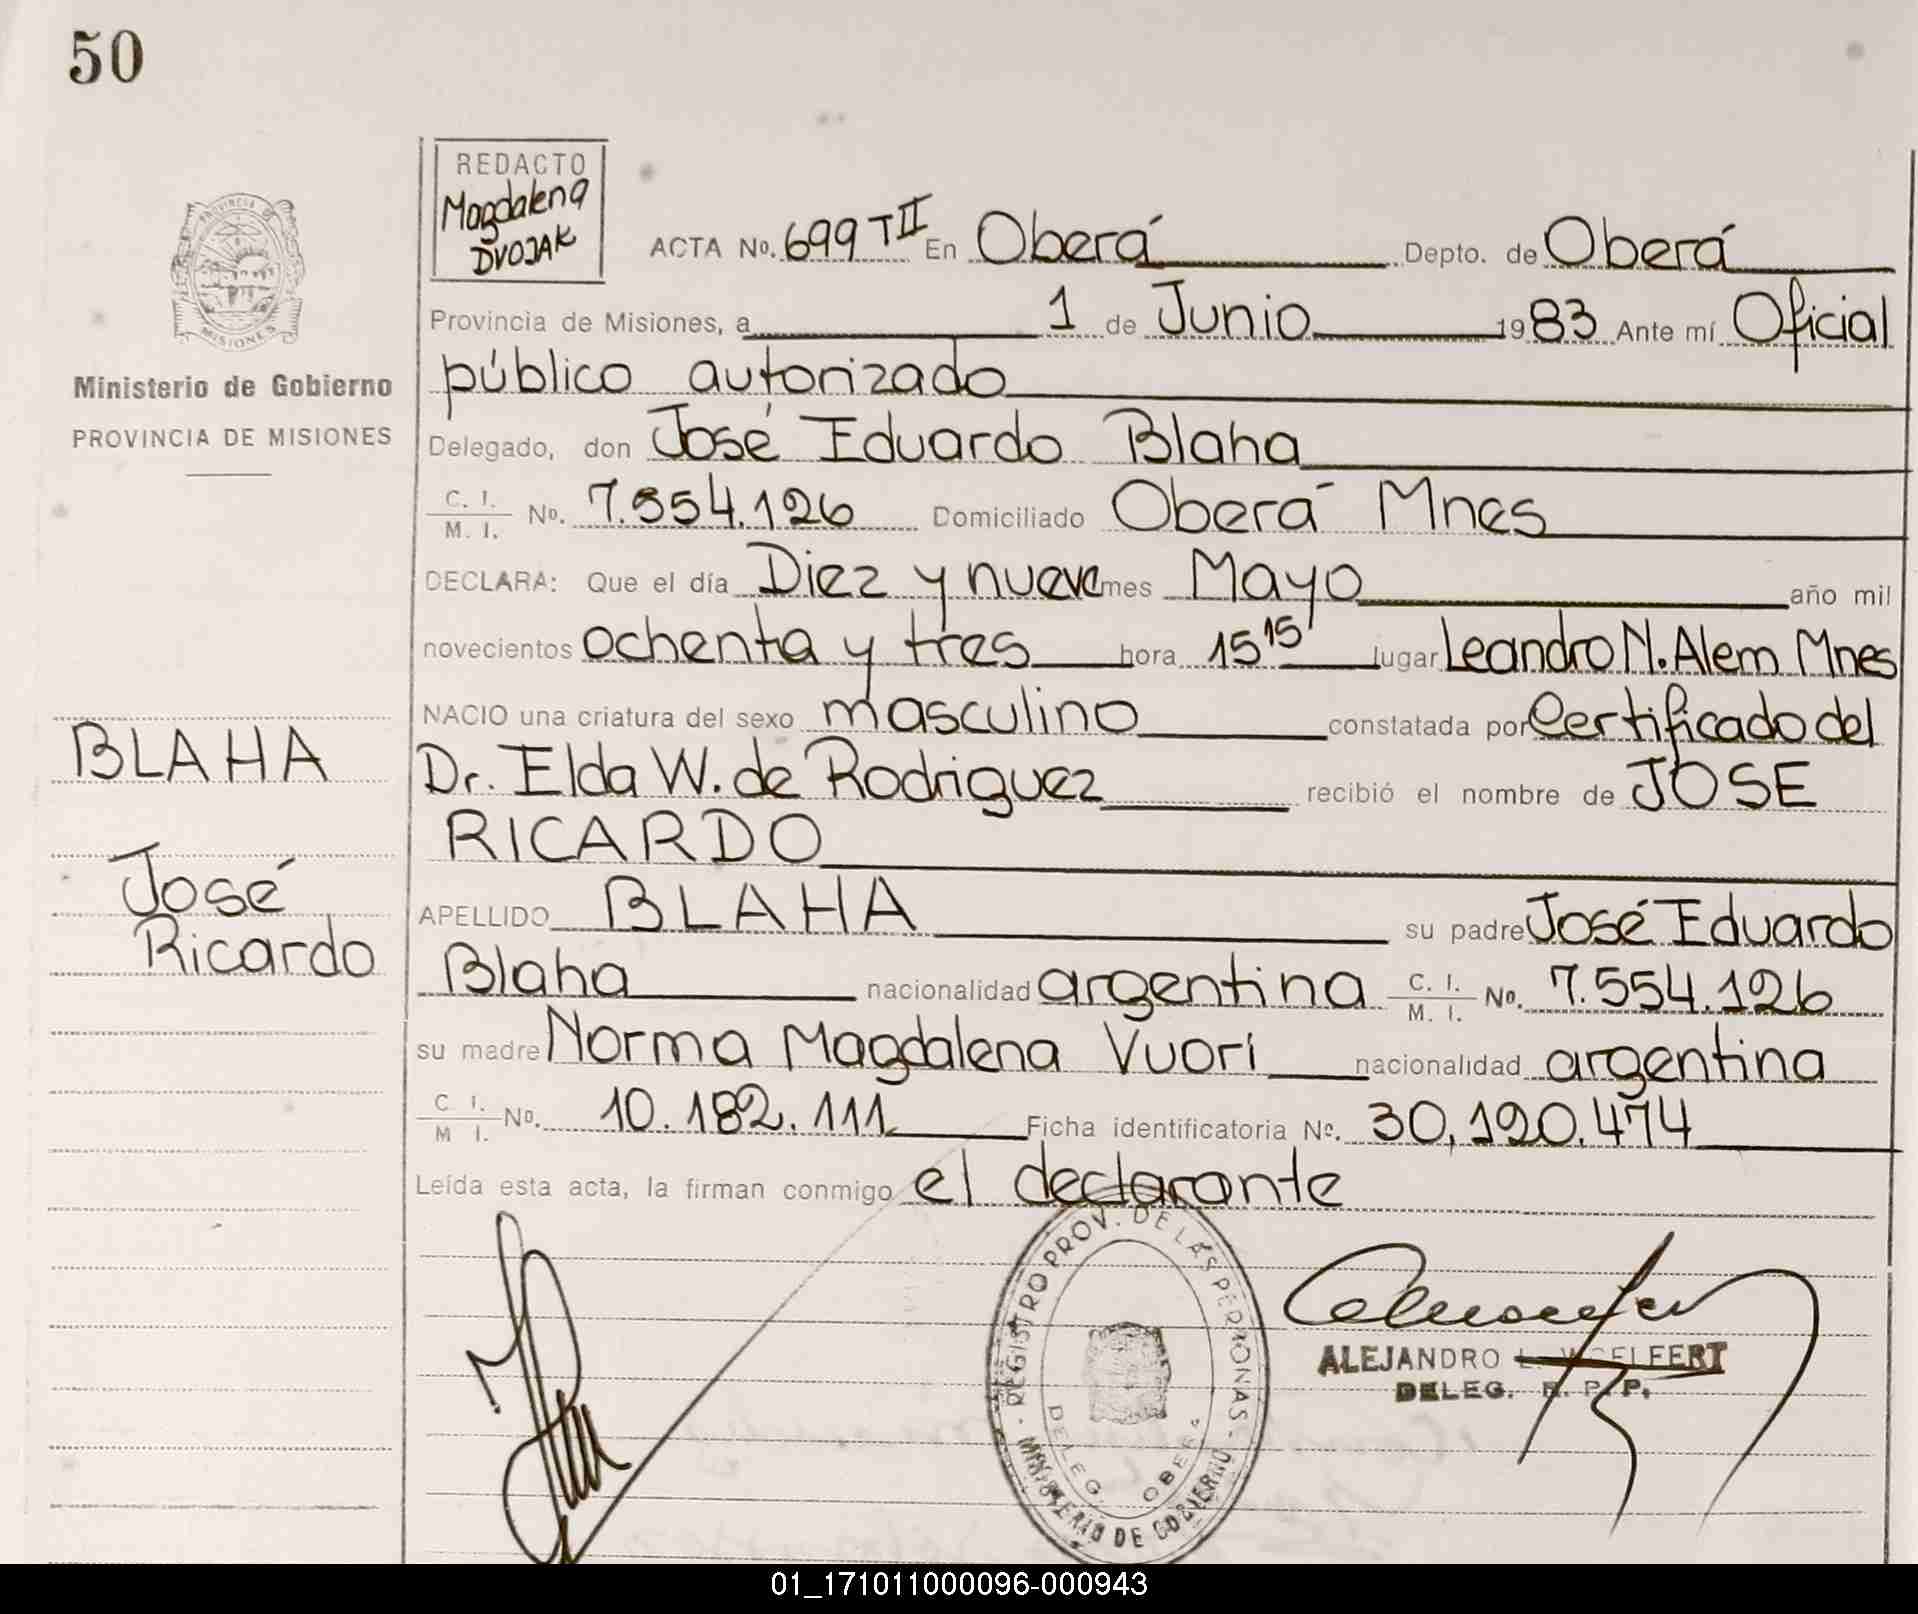 50
REDACTO
Magdalena
DVOJAK
ACTA No. 699 TII En Oberá Depto. de Oberá
Provincia de Misiones, a 1 de Junio 1983 Ante mí Oficial
público autorizado
Delegado, don José Eduardo Blaha
C. I.
M. I. No. 7.554.126 Domiciliado Oberá Mnes
DECLARA: Que el día Diez y nueve mes Mayo año mil
novecientos ochenta y tres hora 15 15' lugar Leandro N. Alem Mnes
NACIO una criatura del sexo masculino constatada por Certificado del
Dr. Elda W. de Rodriguez recibió el nombre de JOSE
RICARDO
APELLIDO BLAHA su padre José Eduardo
Blaha nacionalidad argentina C. I. M. I. No. 7.554.126
su madre Norma Magdalena Vuori nacionalidad argentina
C. I. M. I. No. 10.182.111 Ficha identificatoria No. 30,190.474
Leída esta acta, la firman conmigo el declarante
PROVINCIA DE
MISIONES
Ministerio de Gobierno
PROVINCIA DE MISIONES
BLAHA
José
Ricardo
REGISTRO PROV. DE LAS PERSONAS - MINISTERIO DE GOBIERNO -
DELEG. OBERA
ALEJANDRO L. WOELFERT
DELEG. R. P. P.
01_171011000096-000943